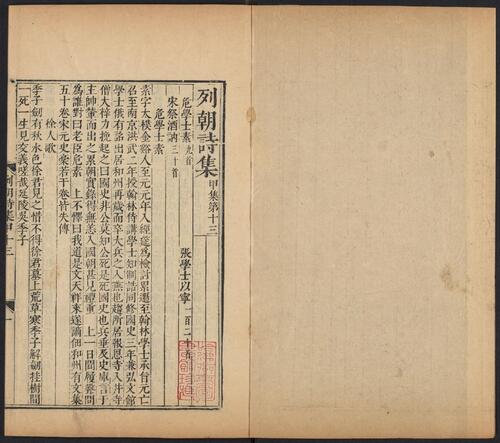 列朝詩集 甲集第十三
危學士素 九首
張學士以寧 一百二十五首
宋祭酒訥 三十首
危學士素
素字太樸金谿人至元元年入經筵爲檢討累遷至翰林學士承旨元亡
召至南京洪武二年授翰林侍講學士知制誥同修國史三年兼弘文館
學士俄有詔出居和州再歲而卒大兵之入燕也趨所居報恩寺入井寺
僧大梓力挽起之曰國史非公莫知公死是死國史也兵垂及史庫言于
主帥輦而出之累朝實錄得無恙入國朝甚見禮重 上一日聞履聲問
爲誰對曰老臣危素 上不懌曰我道是文天祥來遂謫佃和州有文集
五十卷宋元史藁若干卷皆失傳
徐人歌
季子劍有秋水色徐君見之惜不得徐君墓上荒草寒季子解劍挂樹間
一死一生見交義嗟哉延陵吳季子
列朝詩集甲十三
一